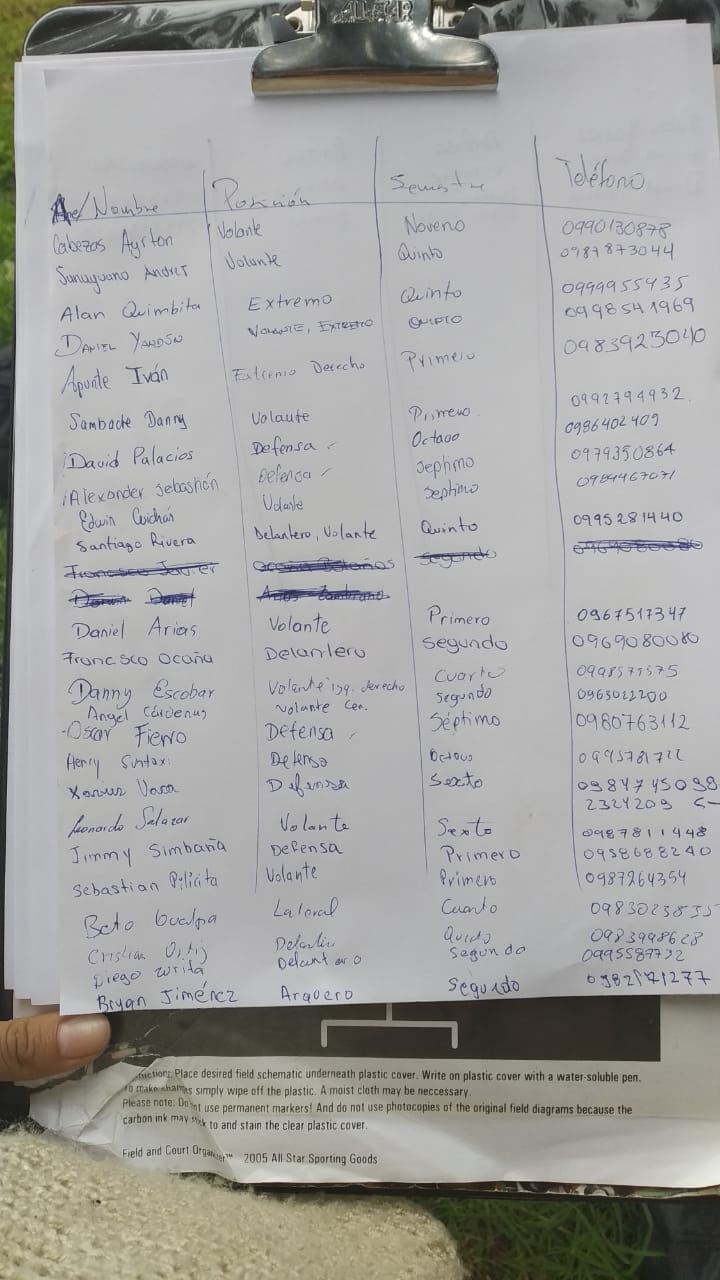 Ape/Nombre Posición Semestre Teléfono
Cabezas Ayrton Volante Noveno 0990130878
Volante Quinto 0987873044
Alan Quimbita Extremo Quinto 0999955435
DANIEL VOLANTE, EXTREMO QUINTO 0998541969
Apunte Iván Extremo Derecho Primero 0983923040
Sambache Danny Volante Primero 0992794932
David Palacios Defensa ✓ Octavo 0986402409
Alexander Sebastián Defensa ✓ Septimo 0979350864
Edwin Guichán Volante Septimo 0984467071
Santiago Rivera Delantero, Volante Quinto 0995281440
Daniel Arias Volante Primero 0967517347
Francisco Ocaña Delantero Segundo 0969080080
Danny Escobar Volante izq. derecho Cuarto
Angel Cárdenas Volante Cen. Segundo
Oscar Fierro Defensa Séptimo 0980763112
Henry Defensa Octavo
Defensa Sexto 0984745098
2324209
Leonardo Salazar Volante Sexto 0987811448
Jimmy Simbaña Defensa Primero 0958688240
Sebastian Pilicita Volante Primero 0987264354
Beto Gualpa Lateral Cuarto
Cristian Ortiz 0983998628
Diego Delantero Segundo 0995587732
Bryan Jiménez Arquero Segundo
Place desired field schematic underneath plastic cover. Write on plastic cover with a water-soluble pen.
To make changes simply wipe off the plastic. A moist cloth may be neccessary.
Please note: Do not use permanent markers! And do not use photocopies of the original field diagrams because the
carbon ink may stick to and stain the clear plastic cover.
Field and Court Organizer™ 2005 All Star Sporting Goods